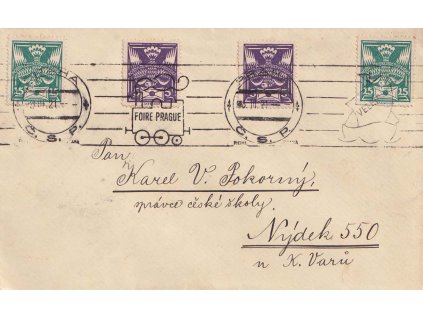 PRAHA
Č.S.P.
FOIRE PRAGUE
Č.S.P.
Pan
Karel V. Pokorný,
správce české školy.
Nýdek 550
u K. Varů